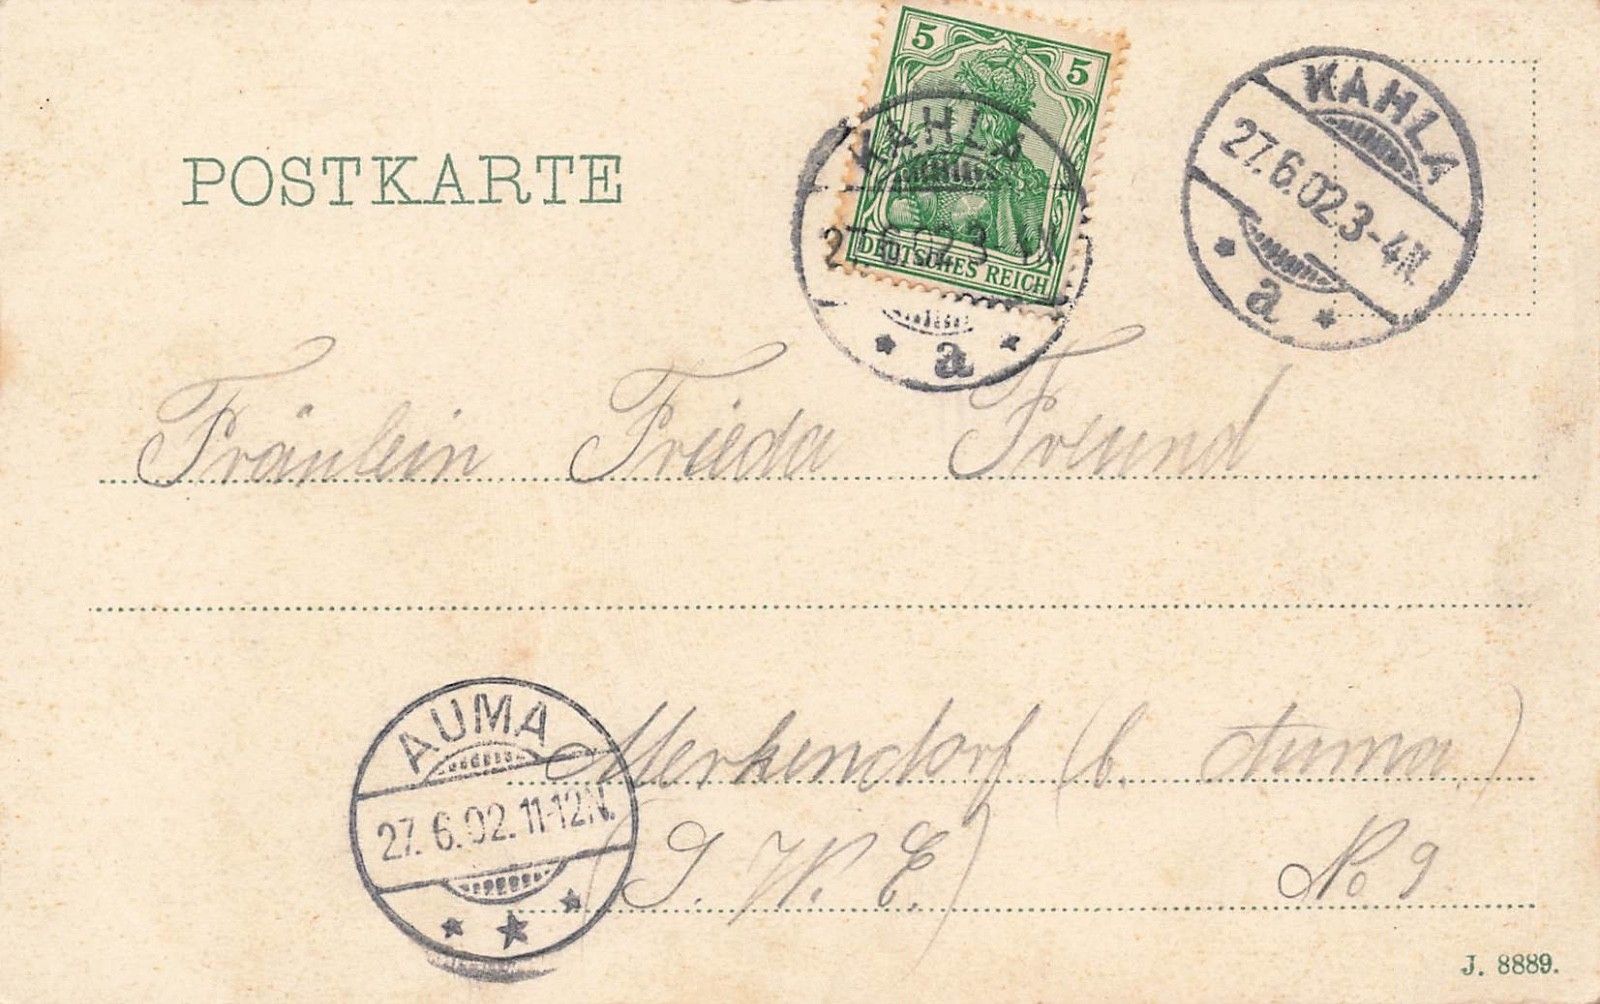 5 5
DEUTSCHES REICH
KAHLA
27.6.02.3-4N.
a
KAHLA
27.6.02.3-4N.
a
POSTKARTE
Fräulein Frieda Freund
AUMA
27.6.02.11-12N.
Merkendorf (b. Auma.)
(S. W. E.) No 9.
J. 8889.